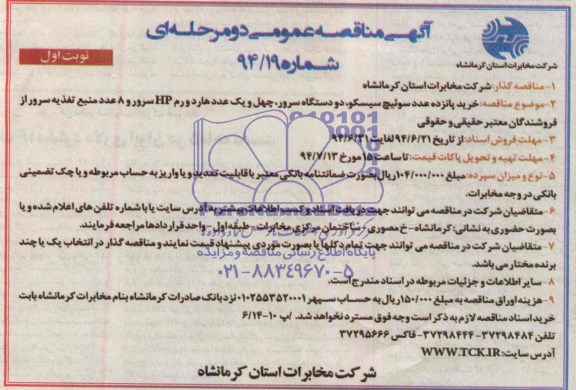 آگهی مناقصه عمومی دو مرحله‌ای
شماره ۹۴/۱۹
نوبت اول
شرکت مخابرات استان کرمانشاه
۱- مناقصه گذار: شرکت مخابرات استان کرمانشاه
۲- موضوع مناقصه: خرید پانزده عدد سوئیچ سیسکو، دو دستگاه سرور، چهل و یک عدد هارد و رم HP سرور و ۸ عدد منبع تغذیه سرور از
فروشندگان معتبر حقیقی و حقوقی
۳- مهلت فروش اسناد: از تاریخ ۹۴/۶/۲۱ لغایت ۹۴/۶/۳۱
۴- مهلت تهیه و تحویل پاکات قیمت: تا ساعت ۱۵ مورخ ۹۴/۷/۱۳
۵- نوع و میزان سپرده: مبلغ ۱۰۴/۰۰۰/۰۰۰ ریال بصورت ضمانتنامه بانکی معتبر با قابلیت تمدید و یا واریز به حساب مربوطه و یا چک تضمینی
بانکی در وجه مخابرات.
۶- متقاضیان شرکت در مناقصه می توانند جهت دریافت اسناد و کسب اطلاعات بیشتر به آدرس سایت یا با شماره تلفن های اعلام شده و یا
بصورت حضوری به نشانی: کرمانشاه - خ معموری - ساختمان مرکزی مخابرات - طبقه اول - واحد قراردادها مراجعه فرمایند.
۷- متقاضیان شرکت در مناقصه می توانند جهت تمام اقلام یا بصورت موردی پیشنهاد قیمت نمایند و مناقصه گذار در انتخاب یک یا چند
برنده مختار می باشد.
پایگاه اطلاع رسانی مناقصه و مزایده
۸- سایر اطلاعات و جزئیات مربوطه در اسناد مندرج است.
۰۲۱-۸۸۳۴۹۶۷۰-۵
۹- هزینه اوراق مناقصه به مبلغ ۱۵۰/۰۰۰ ریال به حساب سپهر ۰۱۰۲۵۵۳۵۲۰۰۱ نزد بانک صادرات کرمانشاه بنام مخابرات کرمانشاه بابت
خرید اسناد مناقصه لازم به ذکر است وجه فوق مسترد نخواهد شد. /پ ۱۰-۶/۱۴
تلفن ۳۷۲۹۸۴۸۴-۳۷۲۹۸۴۴۴ - فاکس ۳۷۲۹۵۶۶۶
آدرس سایت: WWW.TCK.IR
شرکت مخابرات استان کرمانشاه